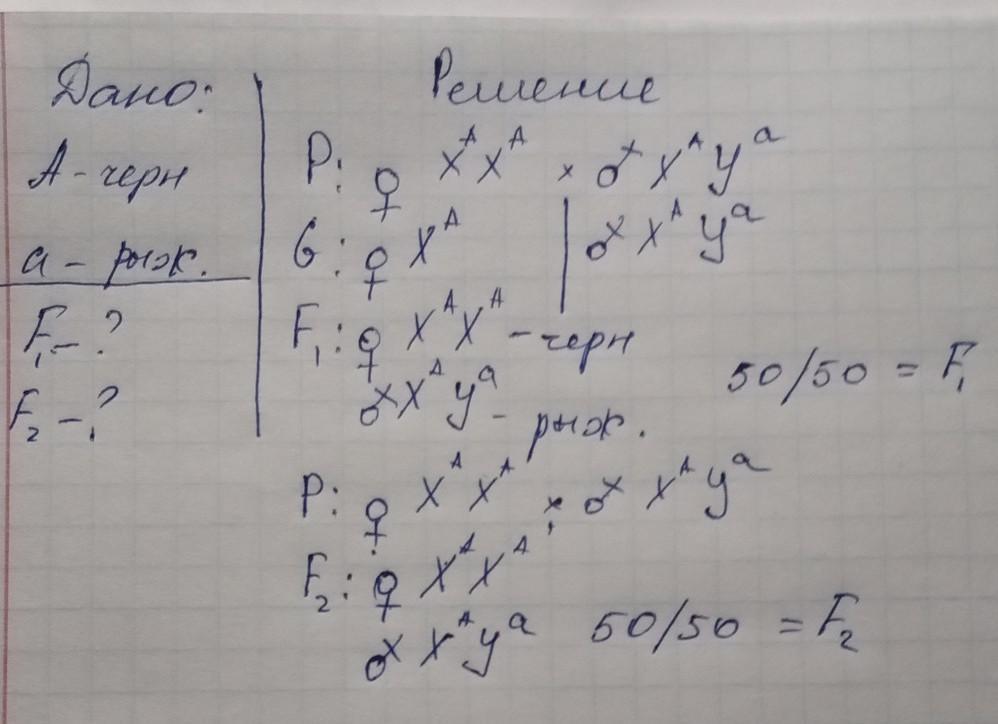 Дано:
А - черн
а - рыж.
F₁ - ?
F₂ - ?
Решение
P: ♀ XᴬXᴬ × ♂ XᴬYᵃ
G: ♀ Xᴬ | ♂ Xᴬ Yᵃ
F₁: ♀ XᴬXᴬ - черн
♂ XᴬYᵃ - рыж.
50/50 = F₁
P: ♀ XᴬXᴬ × ♂ XᴬYᵃ
F₂: ♀ XᴬXᴬ
♂ XᴬYᵃ 50/50 = F₂